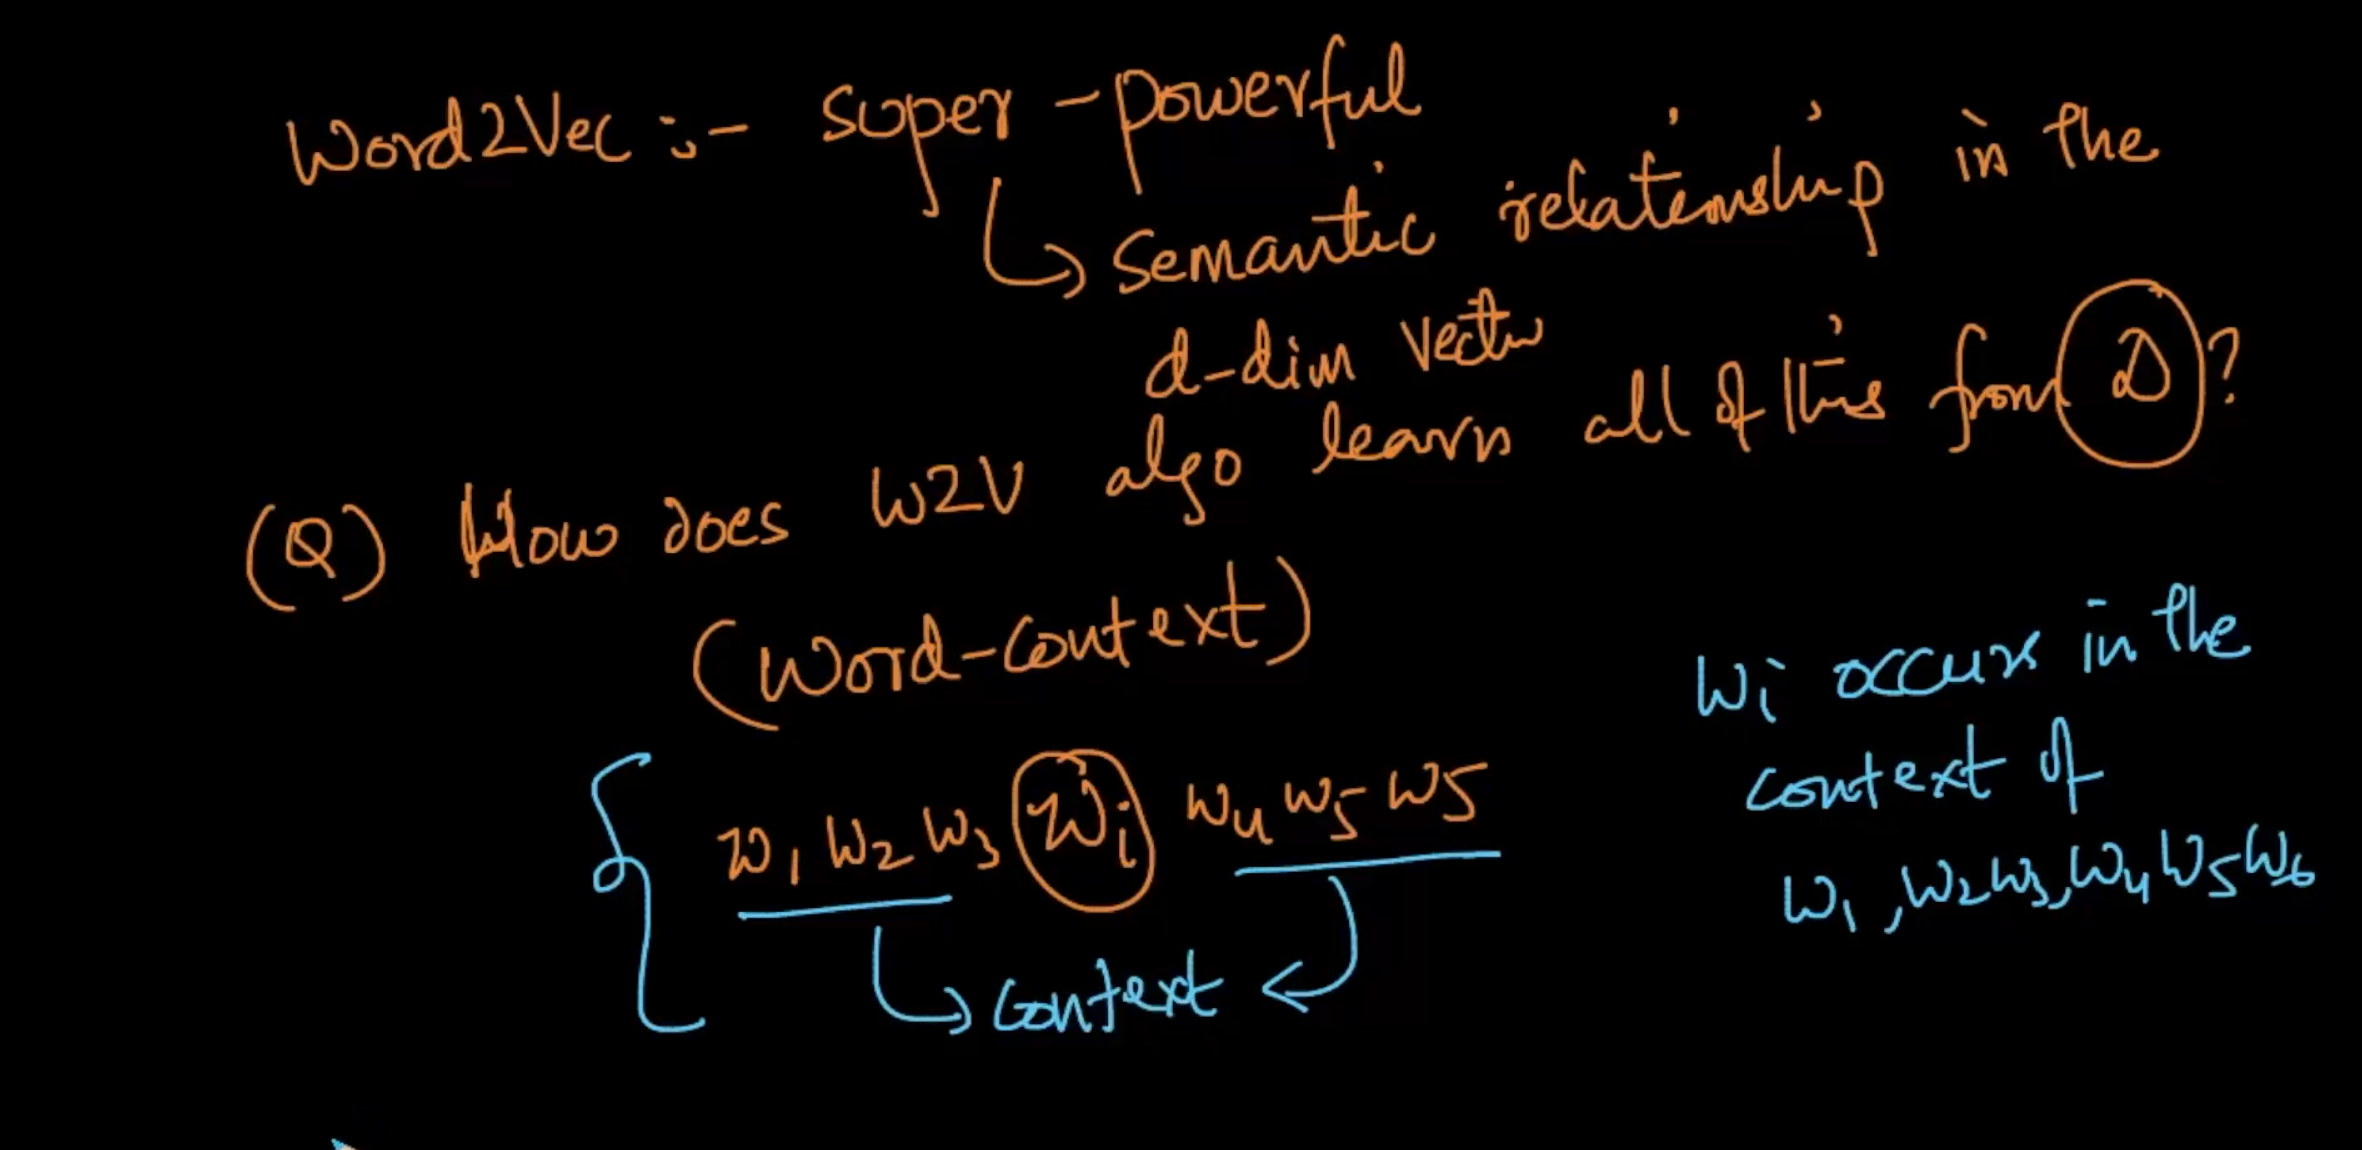 Word2Vec :- super-powerful
↳ semantic relationship in the
d-dim vector
(Q) How does W2V algo learn all of this from D?
(Word-context)
w1 w2 w3 wi w4 w5 w5
context
wi occurs in the
context of
w1, w2 w3, w4 w5 w6